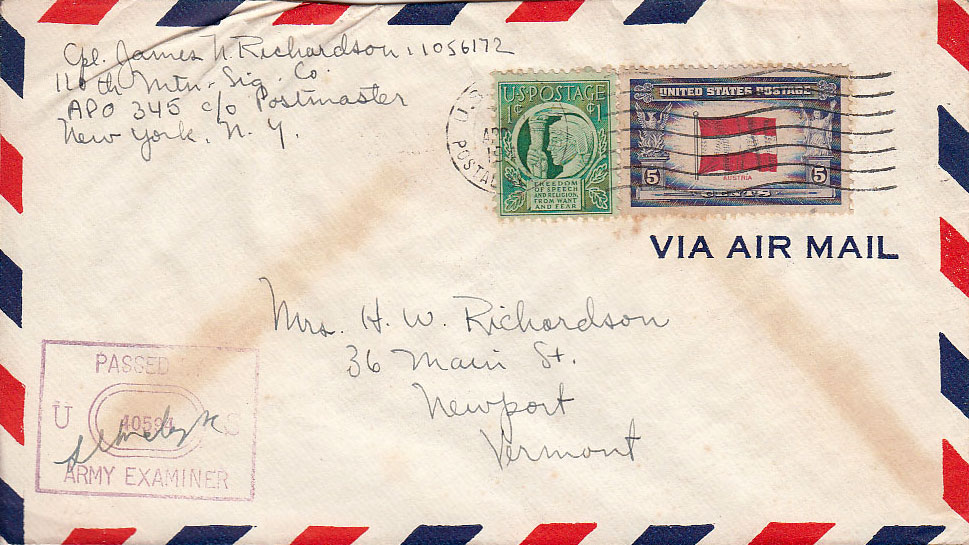 Cpl. James N. Richardson, 11056172
110th Mtn. Sig. Co.
APO 345 c/o Postmaster
New York, N. Y.
U.S.
POSTAL
APR
US POSTAGE
1¢ ¢1
FREEDOM
OF SPEECH
AND RELIGION,
FROM WANT
AND FEAR
UNITED STATES POSTAGE
AUSTRIA
5 5
CENTS
VIA AIR MAIL
Mrs. H. W. Richardson
36 Main St.
Newport
Vermont
PASSED
U S
ARMY EXAMINER